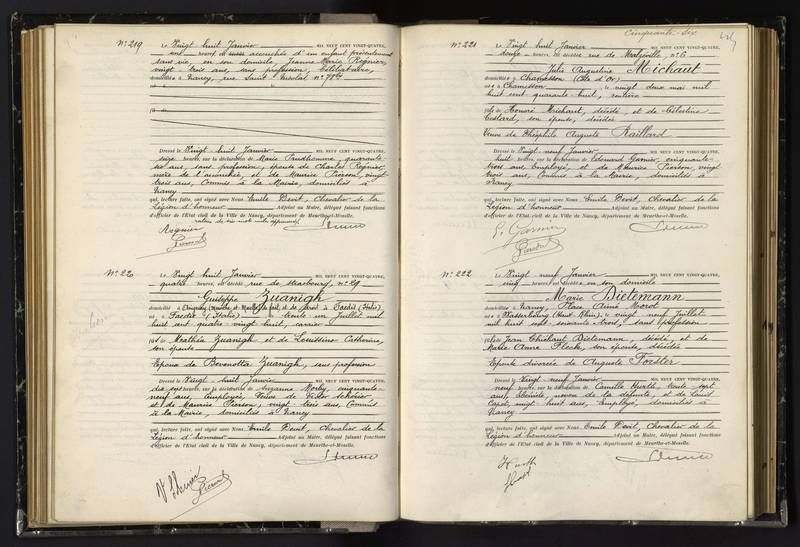 N° 219
Le Vingt huit Janvier MIL NEUF CENT VINGT-QUATRE,
une heure, est accouchée d'un enfant présentement
sans vie, en son domicile, Jeanne Marie Régnier,
vingt trois ans, sans profession, Célibataire,
domiciliée à Nancy, rue Saint Nicolas n° 78
Dressé le Vingt huit Janvier MIL NEUF CENT VINGT-QUATRE,
seize heures, sur la déclaration de Marie Prudhomme, quarante
six ans, sans profession, épouse de Charles Régnier,
mère de l'accouchée, et de Maurice Pierson, vingt
trois ans, Commis à la Mairie, domiciliés à
Nancy
qui, lecture faite, ont signé avec Nous Emile Devit, Chevalier de la
Légion d'honneur Adjoint au Maire, délégué faisant fonctions
d'Officier de l'Etat civil de la Ville de Nancy, département de Meurthe-et-Moselle.
Regnier
Pierson
N° 220
Le Vingt huit Janvier MIL NEUF CENT VINGT-QUATRE,
quatre heures, est décédé rue de Strasbourg, n° 29
Giuseppe Zuanigh
domicilié à
né à Faedis (Italie) le trente un Juillet mil
huit cent quatre vingt huit, carrier
fils de Mathia Zuanigh et de Catherine,
son épouse
Epoux de Zuanigh, sans profession
Dressé le Vingt huit Janvier MIL NEUF CENT VINGT-QUATRE,
dix sept heures, sur la déclaration de Suzanne cinquante-
neuf ans, Employée, Veuve de Victor
et de Maurice Pierson, vingt trois ans, Commis
à la Mairie, domiciliés à Nancy
qui, lecture faite, ont signé avec Nous Emile Devit, Chevalier de la
Légion d'honneur Adjoint au Maire, délégué faisant fonctions
d'Officier de l'Etat civil de la Ville de Nancy, département de Meurthe-et-Moselle.
Pierson
Cinquante-six
N° 221
Le Vingt huit Janvier MIL NEUF CENT VINGT-QUATRE,
douze heures, est décédée rue de Malzéville n° 6
Julie Augustine Michaut
domiciliée à Chamesson (Côte d'Or)
née à Chamesson le vingt deux mai mil
huit cent quarante huit, rentière
fille de Honoré Michaut, décédé, et de Célestine
son épouse, décédée
Veuve de Théophile Auguste Raillard
Dressé le Vingt neuf Janvier MIL NEUF CENT VINGT-QUATRE,
huit heures, sur la déclaration de Edouard Garnier, cinquante-
trois ans, Employé, et de Maurice Pierson, vingt
trois ans, Commis à la Mairie, domiciliés à
Nancy
qui, lecture faite, ont signé avec Nous Emile Devit, Chevalier de la
Légion d'honneur Adjoint au Maire, délégué faisant fonctions
d'Officier de l'Etat civil de la Ville de Nancy, département de Meurthe-et-Moselle.
E. Garnier
Pierson
N° 222
Le Vingt neuf Janvier MIL NEUF CENT VINGT-QUATRE,
cinq heures, est décédée en son domicile
Marie Dietemann
domiciliée à Nancy, Place Aimé Morot
née à (Haut Rhin) le vingt neuf Juillet
mil huit cent soixante trois, sans profession
fille de Jean Thiébaut Dietemann, décédé, et de
Marie Anne son épouse, décédée
Epouse divorcée de Auguste Forster
Dressé le Vingt neuf Janvier MIL NEUF CENT VINGT-QUATRE,
neuf heures, sur la déclaration de Camille trente sept
ans, neveu de la défunte, et de Louis
vingt huit ans, Employé, domiciliés à
Nancy
qui, lecture faite, ont signé avec Nous Emile Devit, Chevalier de la
Légion d'honneur Adjoint au Maire, délégué faisant fonctions
d'Officier de l'Etat civil de la Ville de Nancy, département de Meurthe-et-Moselle.